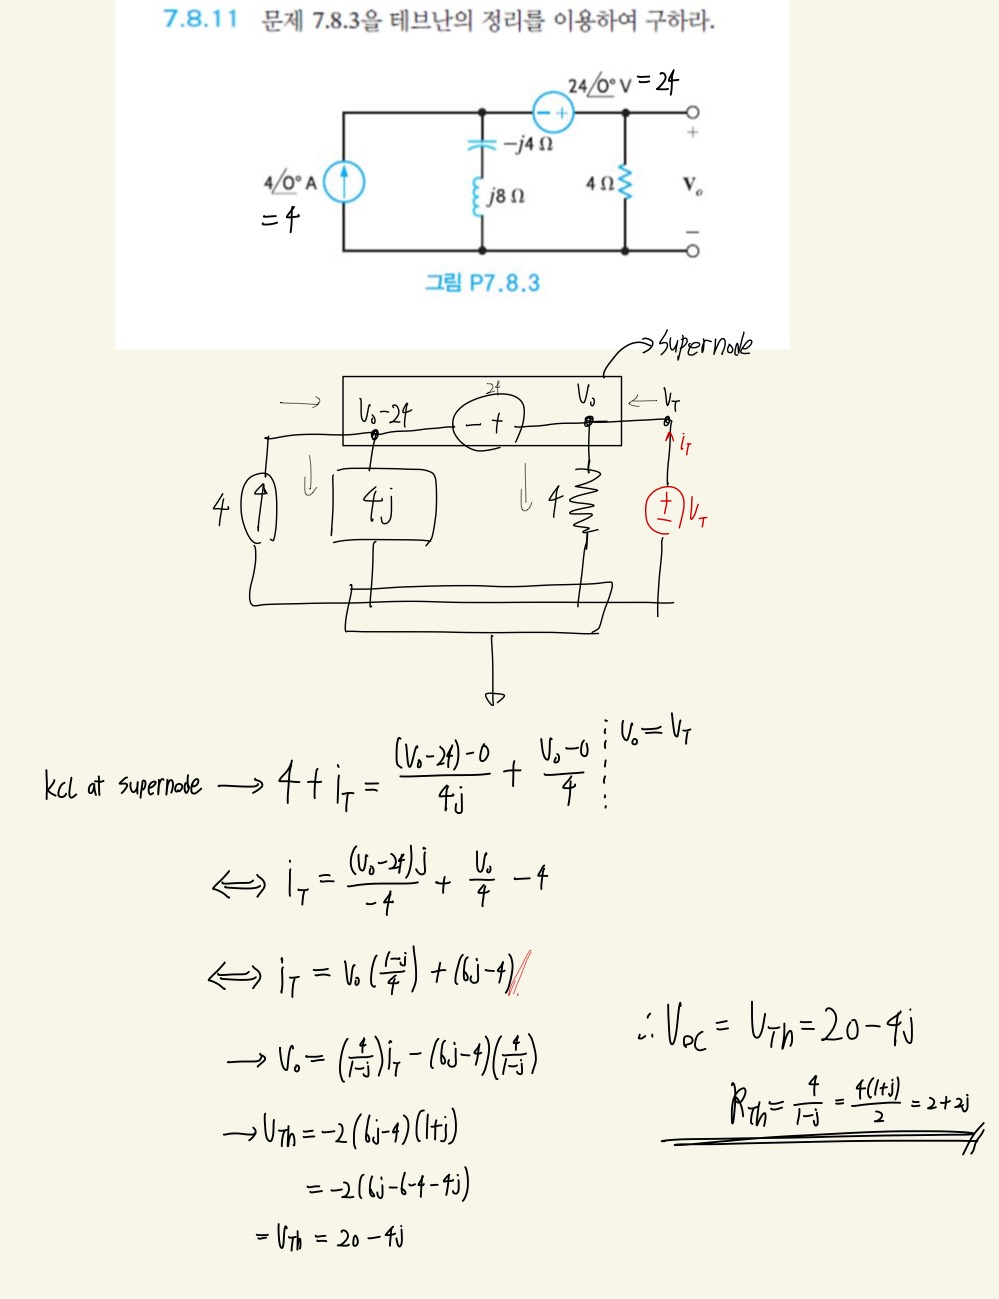 7.8.11 문제 7.8.3을 테브난의 정리를 이용하여 구하라.
24/0° V = 24
- +
-j4 Ω
+
4/0° A
4 Ω
V₀
j8 Ω
= 4
-
그림 P7.8.3
supernode
24
V₀
V_T
V₀-24
- +
i_T
4
4j
4
+
-
V_T
kcl at supernode → 4 + i_T = ((V₀-24)-0)/4j + (V₀-0)/4 ⋮ V₀ = V_T
⟺ i_T = (V₀-24)j/-4 + V₀/4 - 4
⟺ i_T = V₀((1-j)/4) + (6j-4)
→ V₀ = (4/(1-j))i_T - (6j-4)(4/(1-j))
→ V_Th = -2(6j-4)(1+j)
= -2(6j-6-4-4j)
= V_Th = 20-4j
∴ V_oc = V_Th = 20-4j
R_Th = 4/(1-j) = 4(1+j)/2 = 2+2j